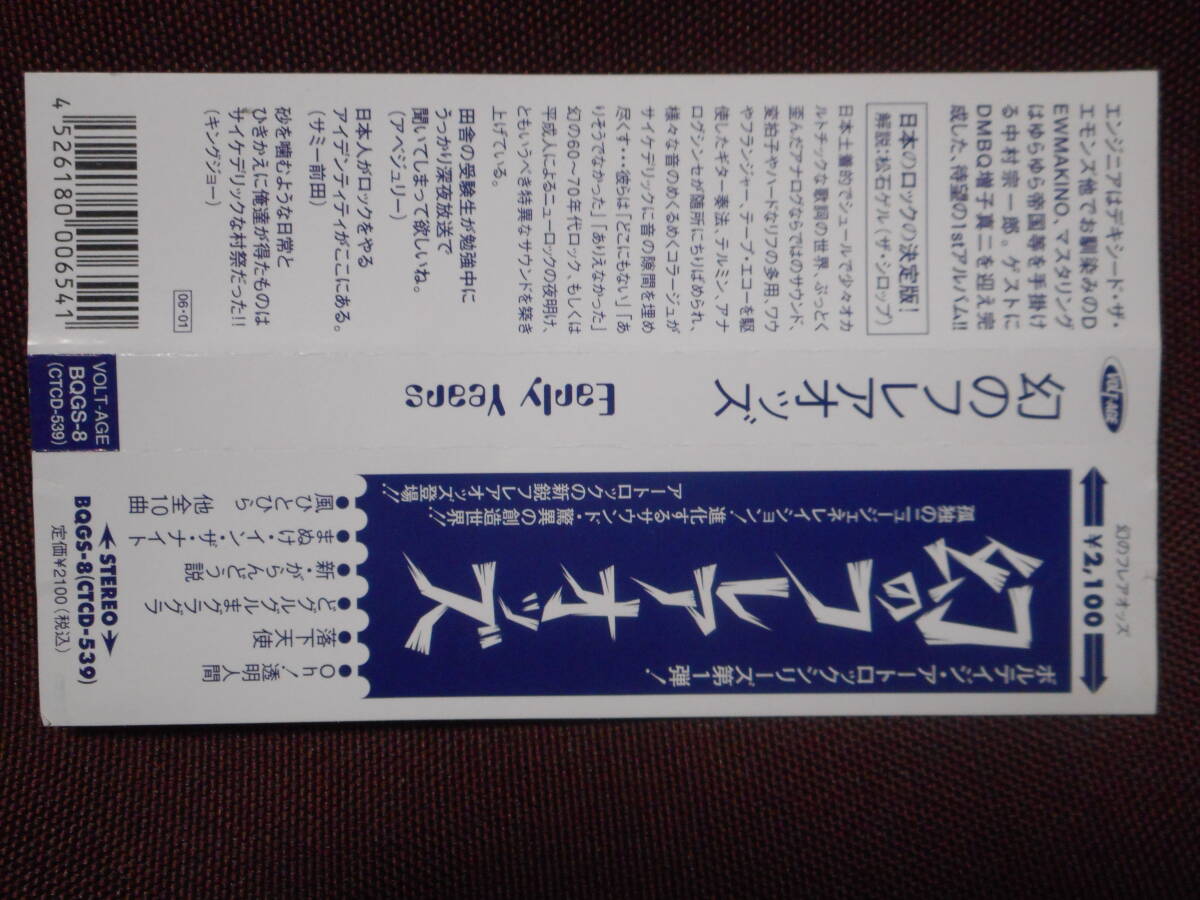 幻のフレアオッズ
¥2,100
ボルテイジ・アートロックシリーズ第1弾!
幻のフレアオッズ
孤独のニュージェネレイション!進化するサウンド・驚異の創造世界!!
アートロックの新鋭フレアオッズ登場!!
●Oh!透明人間
●落下天使
●どグルグルまグラグラ
●新・がらんどう説
●まぬけ・イン・ザ・ナイト
●風ひとひら 他全10曲
STEREO
BQGS-8(CTCD-539)
定価¥2100(税込)
VOLT-AGE
幻のフレアオッズ
Early Years
VOLT-AGE
BQGS-8
(CTCD-539)
エンジニアはデキシード・ザ・
エモンズ他でお馴染みのD
EWMAKINO、マスタリング
はゆらゆら帝国等を手掛け
る中村宗一郎。ゲストに
DMBQ増子真二を迎え完
成した、待望の1stアルバム!!
日本のロックの決定版!
解説:松石ゲル(ザ・シロップ)
日本土着的でシュールで少々オカ
ルトチックな歌詞の世界、ぶっとく
歪んだアナログならではのサウンド、
変拍子やハードなリフの多用、ワウ
やフランジャー、テープ・エコーを駆
使したギター奏法、テルミン、アナ
ログシンセが随所にちりばめられ、
様々な音のめくるめくコラージュが
サイケデリックに音の隙間を埋め
尽くす…彼らは「どこにもない」「あ
りそうでなかった」「ありえなかった」
幻の60〜70年代ロック、もしくは
平成人によるニューロックの夜明け、
ともいうべき特異なサウンドを築き
上げている。
田舎の受験生が勉強中に
うっかり深夜放送で
聞いてしまって欲しいね。
(アベジュリー)
日本人がロックをやる
アイデンティティがここにある。
(サミー前田)
砂を噛むような日常と
ひきかえに俺達が得たものは
サイケデリックな村祭だった!!
(キングジョー)
06・01
4526180006541